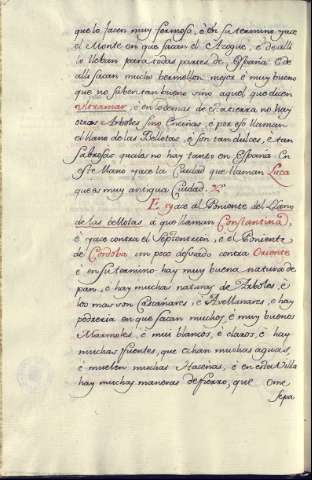 que lo facen muy fermoso, è en su termino yace
el Monte en que sacan el Azogue, è de alli
lo llevan para todas partes de España. E de
alli sacan mucho bermellon mejor è muy bueno
que no saben tan bueno sino aquel que dicen
Ultramar, è en lo demas de esa tierra no hay
otros Arboles sino Encinas, è por eso llaman
el llano de las Bellotas, è son tan dulces, è tan
sabrosas, quales no hay tanto en España. En
este Mano yace la Ciudad que llaman Luca
que es muy antigua Ciudad.
El yace al Poniente del Llano
de las bellotas à que llaman Constantina,
è yace contra el Septentrion, è el Poniente
de Cordoba un poco desviado contra Oriente
è en su termino hay muy buena natura de
pan, è hay muchas naturas de Arboles, è
los mas son Castañares, è Avellanares, è hay
pedreria en que sacan muchos, è muy buenos
Marmoles, è mui blancos, è claros, è hay
muchas fuentes, que echan muchas aguas,
è muelen muchas Hacenas, è en esta Villa
hay muchas maneras de fierro, que ome
sepa